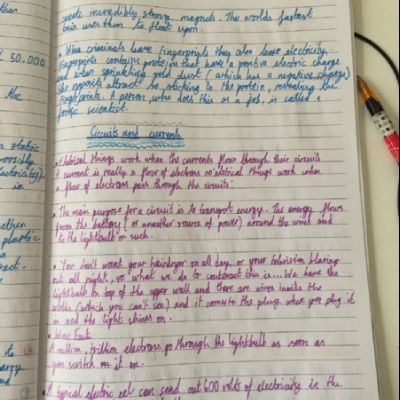 then
create incredibly strong magnets. The worlds fastest
train uses them to float upon.
50.000
• When criminals leave fingerprints they also leave electricity,
fingerprints contains protein that have a positive electric charge
and when sprinkling gold dust (which has a negative charge)
the opposites attract so sticking to the protein, revealing the
fingerprints. A person who does this as a job, is called a
scientist.
the
static
Circuits and currents
possibly
• Electrical things work when the currents flow through their circuits
A current is really a flow of electrons so electrical things work when
a flow of electrons pass through the circuits.
in
• The main purpose for a circuit is to transport energy. The energy flows
from the battery (or another source of power) around the wires and
to the lightbulb or such.
plastic
a
• You don't want your hairdryer on all day or your television blaring
out all night, so what we do to contract this is... We have the
lightbulb on top of the upper wall and there are wires inside the
walls (which you can't see) and it comes to the plug, when you plug it
in and the light shines on.
• Wow Fact
A million, trillion electrons go through the lightbulb as soon as
you switch on it on.
to
A typical electric eel can send out 600 volts of electricity in the
and